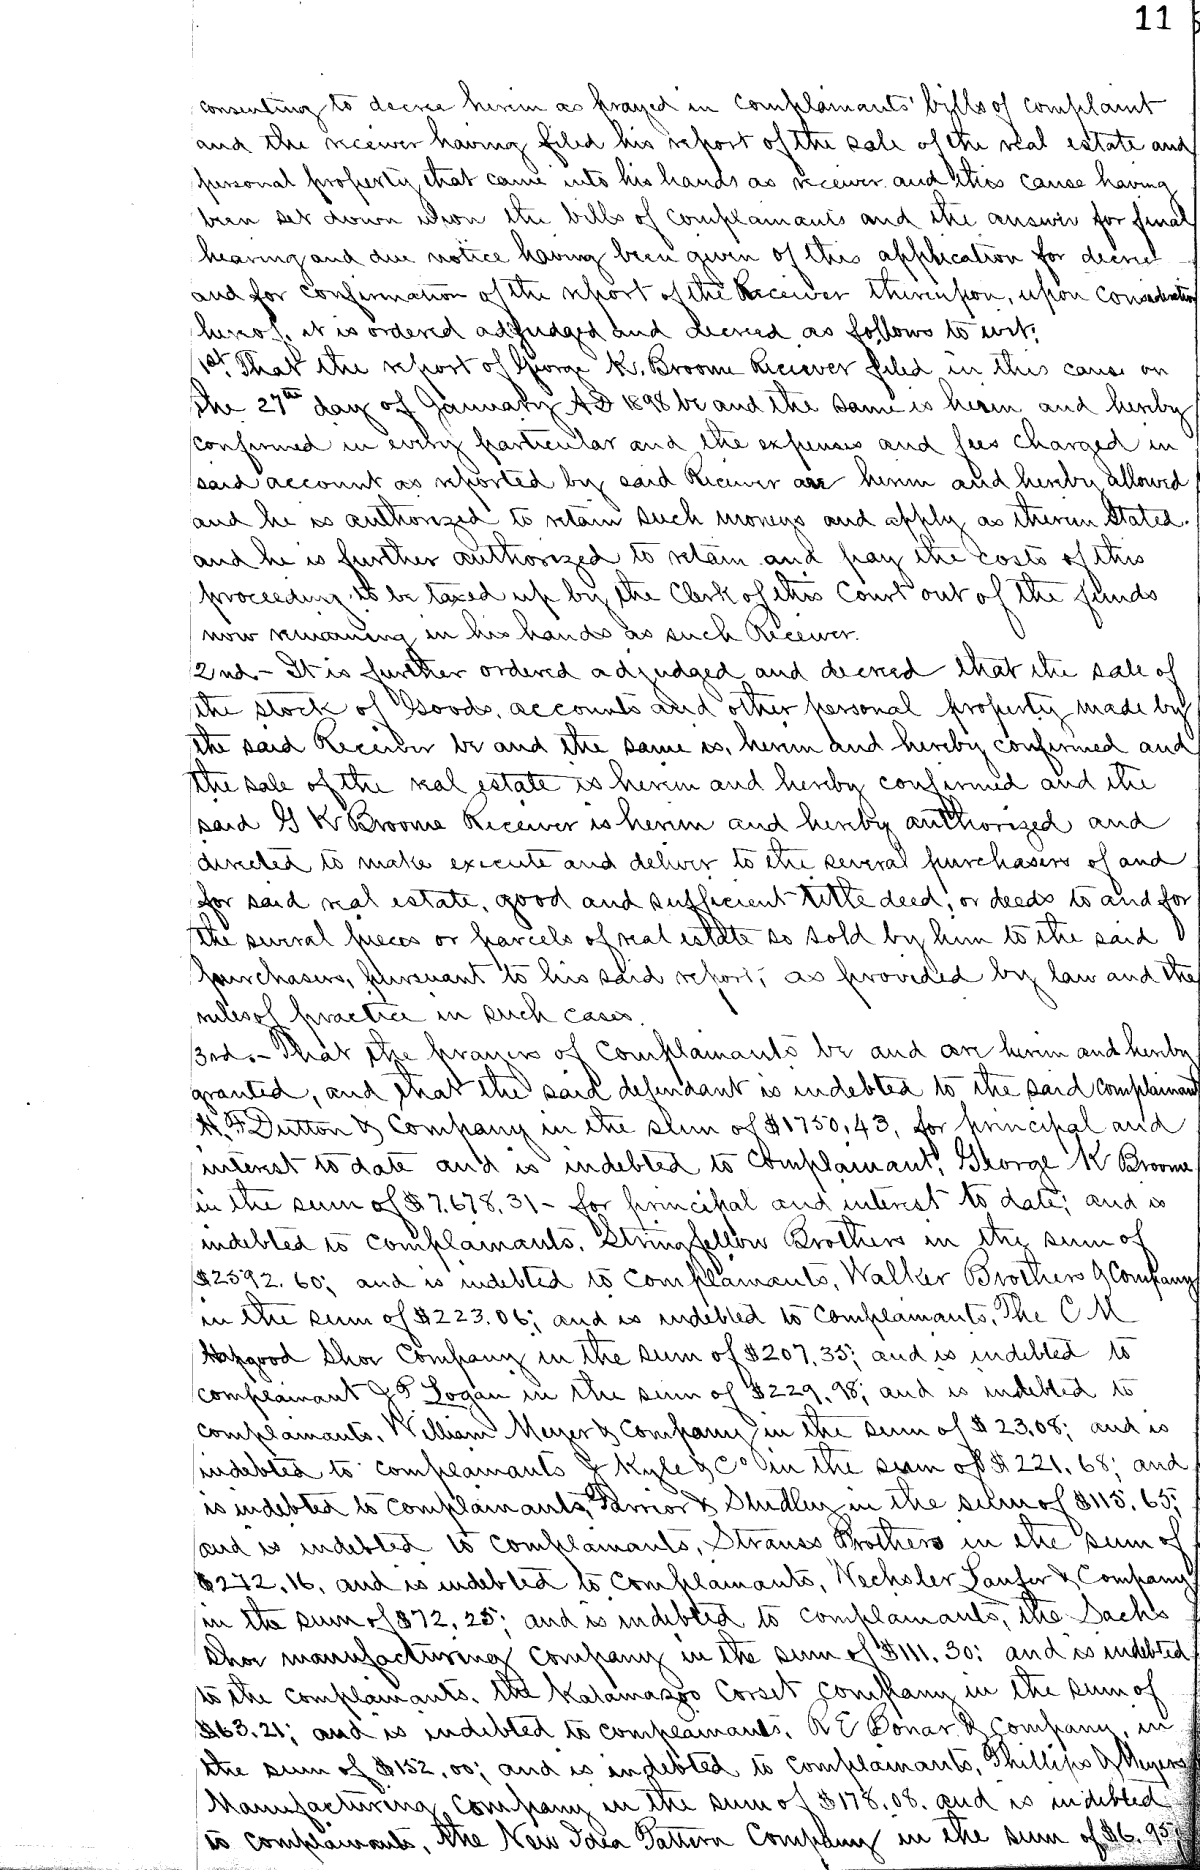 11
consenting to decree herein as prayed in complainants' bills of complaint
and the receiver having filed his report of the sale of the real estate and
personal property that came into his hands as receiver and this cause having
been set down upon the bills of complainants and the answer for final
hearing and due notice having been given of this application for decree
and for confirmation of the report of the Receiver thereupon, upon consideration
hereof, it is ordered adjudged and decreed as follows to wit:
1st. That the report of George K. Broome Reciever filed in this cause on
the 27th day of January AD 1898 be and the same is herein and hereby
confirmed in every particular and the expenses and fees charged in
said account as reported by said Receiver are herein and hereby allowed
and he is authorized to retain such moneys and apply as therein stated.
and he is further authorized to retain and pay the costs of this
proceeding to be taxed up by the Clerk of this Court out of the funds
now remaining in his hands as such Receiver.
2nd.- It is further ordered adjudged and decreed that the sale of
the stock of Goods, accounts and other personal property made by
the said Receiver be and the same is, herein and hereby confirmed and
the sale of the real estate is herein and hereby confirmed and the
said G K Broome Receiver is herein and hereby authorized and
directed to make execute and deliver to the several purchasers of and
for said real estate, good and sufficient title deed, or deeds to and for
the several pieces or parcels of real estate so sold by him to the said
purchasers, pursuant to his said report, as provided by law and the
rules of practice in such cases.
3rd.- That the prayers of Complainants be and are herein and hereby
granted, and that the said defendant is indebted to the said complainant
H. F Dutton & Company in the sum of $1750.43, for principal and
interest to date and is indebted to complainant, George K Broome
in the sum of $7,678.31- for principal and interest to date; and is
indebted to complainants, Stringfellow Brothers in the sum of
$2592.60; and is indebted to complainants, Walker Brothers & Company
in the sum of $223.06; and is indebted to complainants, The C M
Hapgood Shoe Company in the sum of $207.35; and is indebted to
complainant J P Logan in the sum of $229.98; and is indebted to
complainants, William Meyer & Company in the sum of $23.08; and is
indebted to complainants J Kyle & Co in the sum of $221.68; and
is indebted to complainants, & Studley in the sum of $115.65;
and is indebted to complainants, Strauss Brothers in the sum of
$272.16, and is indebted to complainants, Wechsler Laufer & Company
in the sum of $72.25; and is indebted to complainants, the Sachs
Shoe manufacturing Company in the sum of $111.30: and is indebted
to the complainants, the Kalamazoo Corset Company in the sum of
$63.21; and is indebted to complainants, R E Bonar & Company, in
the sum of $152.00; and is indebted to complainants, Phillips & Meyers
Manufacturing Company in the sum of $178.08. and is indebted
to complainants, the New Idea Pattern Company in the sum of $6.95;